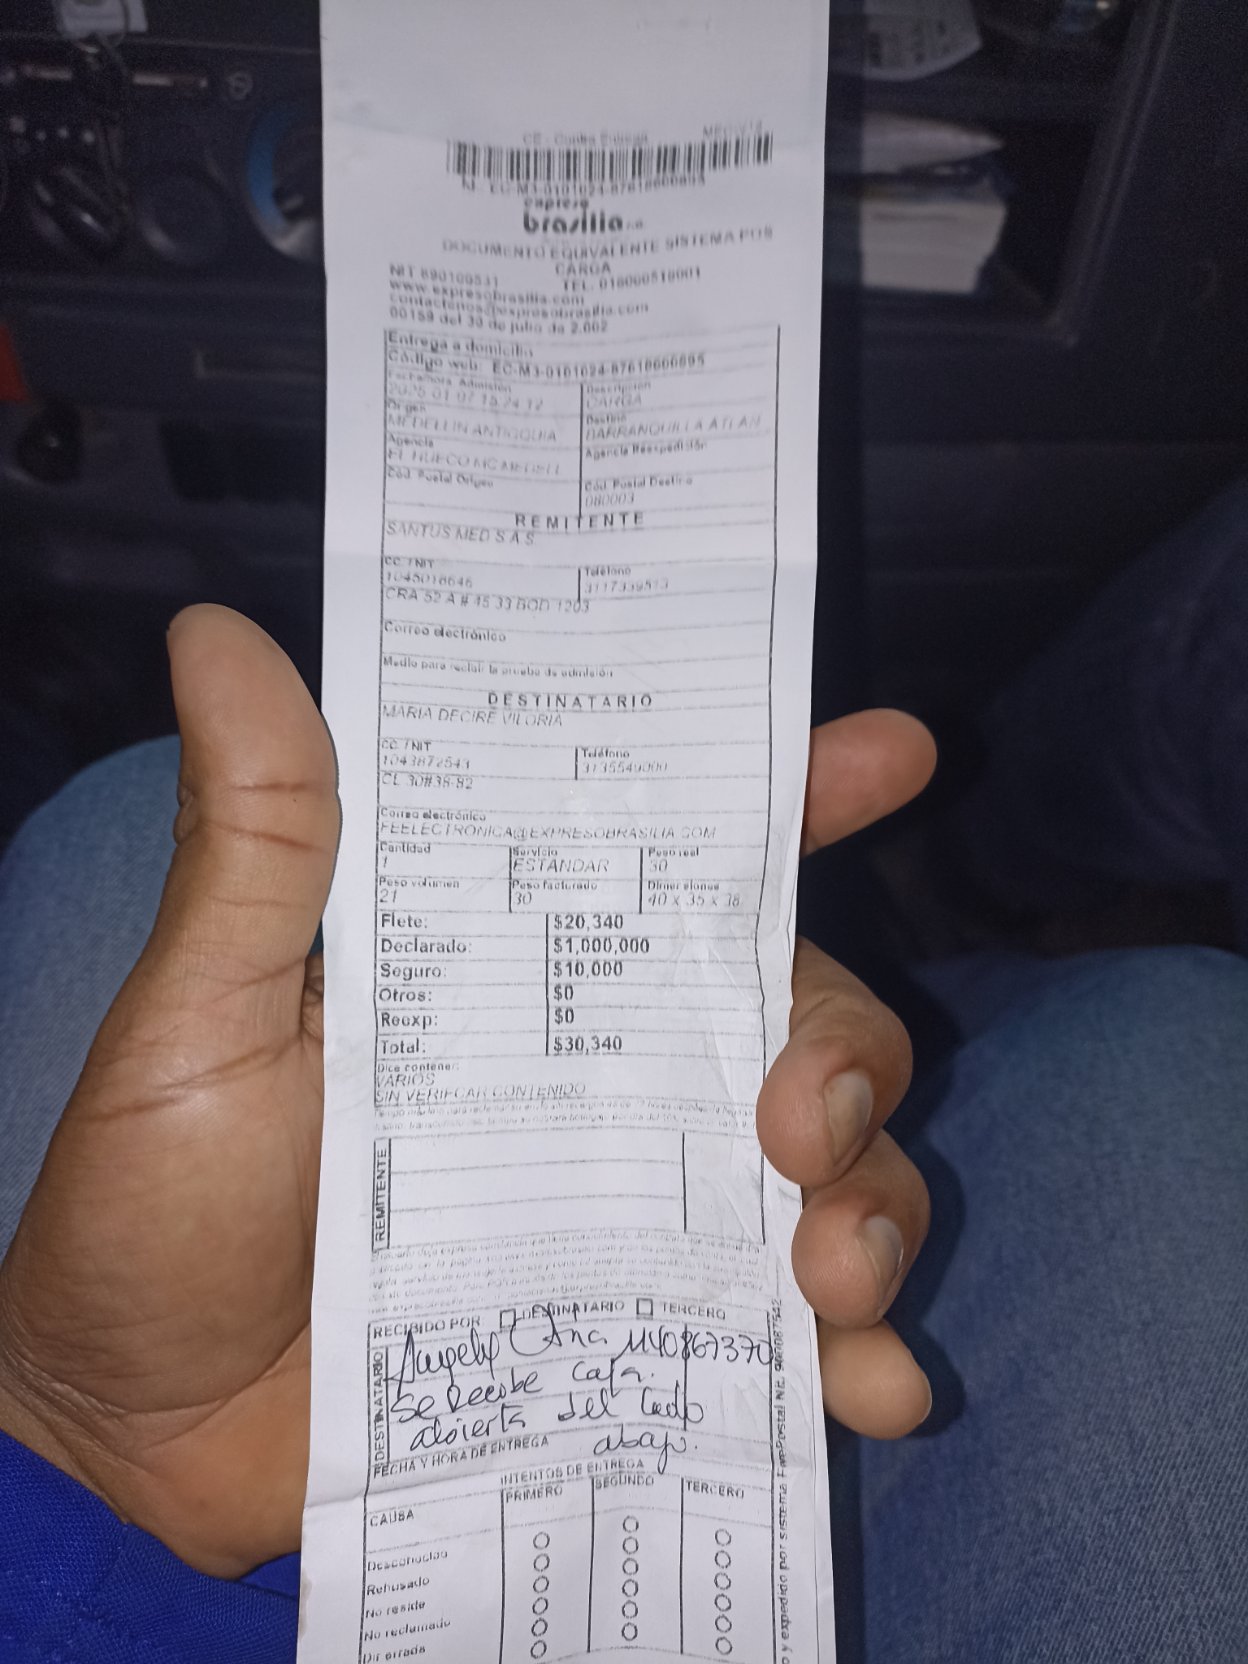 CE - Contra Entrega
expreso
brasilia
DOCUMENTO EQUIVALENTE SISTEMA POS
CARGA
NIT 890100531 TEL. 018000510001
www.expresobrasilia.com
contactenos@expresobrasilia.com
00189 del 30 de julio de 2.002
Entrega a domicilio
Código web: EC-M3-0101024-87618600895
Fecha/hora Admisión Descripción
2025-01-07 15:24:12 CARGA
Origen Destino
MEDELLIN ANTIOQUIA BARRANQUILLA ATLAN
Agencia Agencia Reexpedición
EL HUECO MC MEDELL
Cód. Postal Origen Cód. Postal Destino
080003
REMITENTE
SANTUS MED S A S
CC. / NIT Teléfono
1045018646
CRA 52 A # 45 33 BOD 1203
Correo electrónico
Medio para recibir la prueba de admisión
DESTINATARIO
MARIA DECIRE VILORIA
CC. / NIT Teléfono
1043872543 3135549000
CL 30#38-82
Correo electrónico
FEELECTRONICA@EXPRESOBRASILIA.COM
Cantidad Servicio Peso real
1 ESTANDAR 30
Peso volumen Peso facturado Dimensiones
21 30 40 x 35 x 38
Flete: $20,340
Declarado: $1,000,000
Seguro: $10,000
Otros: $0
Reexp: $0
Total: $30,340
Dice contener:
VARIOS
SIN VERIFCAR CONTENIDO
REMITENTE
RECIBIDO POR DESTINATARIO TERCERO
DESTINATARIO
1140867370
Se Recibe Caja.
abierta del lado
abajo.
FECHA Y HORA DE ENTREGA
INTENTOS DE ENTREGA
CAUSA PRIMERO SEGUNDO TERCERO
Desconocido
Rehusado
No reside
No reclamado
Dir errada